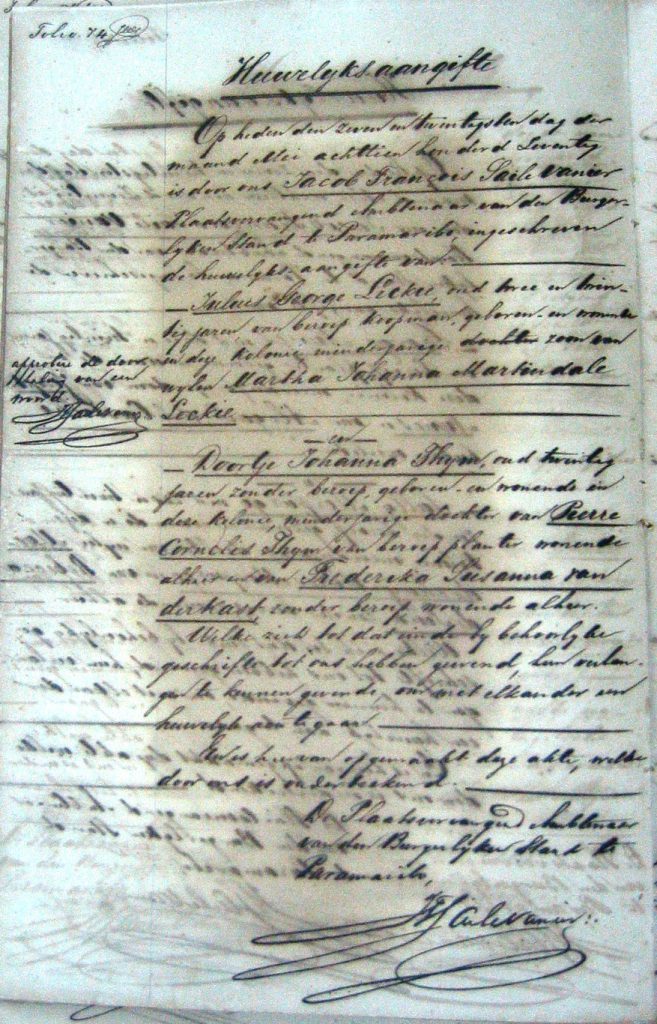 Folio 74
Huwelijksaangifte
Op heden den zeven en twintigsten dag der
maand Mei achttien honderd Zeventig
is door ons Jacob François Sarlevanier
Plaatsvervangend Ambtenaar van den Burger-
lijken Stand te Paramaribo, ingeschreven
de huwelijks-aangifte van
Julius George Lockee oud twee en twin-
tig jaren van beroep Koopman, geboren- en wonende
in deze kolonie, minderjarige dochter zoon van
wylen Martha Johanna Martindale
Lockee
approbere de door
haling van een
woord
en
Doortje Johanna Thym, oud twintig
jaren zonder beroep, geboren- en wonende in
deze kolonie, minderjarige dochter van Pierre
Cornelis Thym van beroep planter wonende
alhier en van Frederika Susanna van
derkast, zonder beroep wonende alhier.
Welke zich tot dat einde by behoorlyke
geschrifte tot ons hebben gewend, hun verlan-
gen te kennen gevende, om met elkander een
huwelyk aan te gaan
Is hiervan opgemaakt deze akte, welke
door ons is onderteekend.
De Plaatsvervangend Ambtenaar
van den Burgerlyken Stand te
Paramaribo,
JFSarlevanier